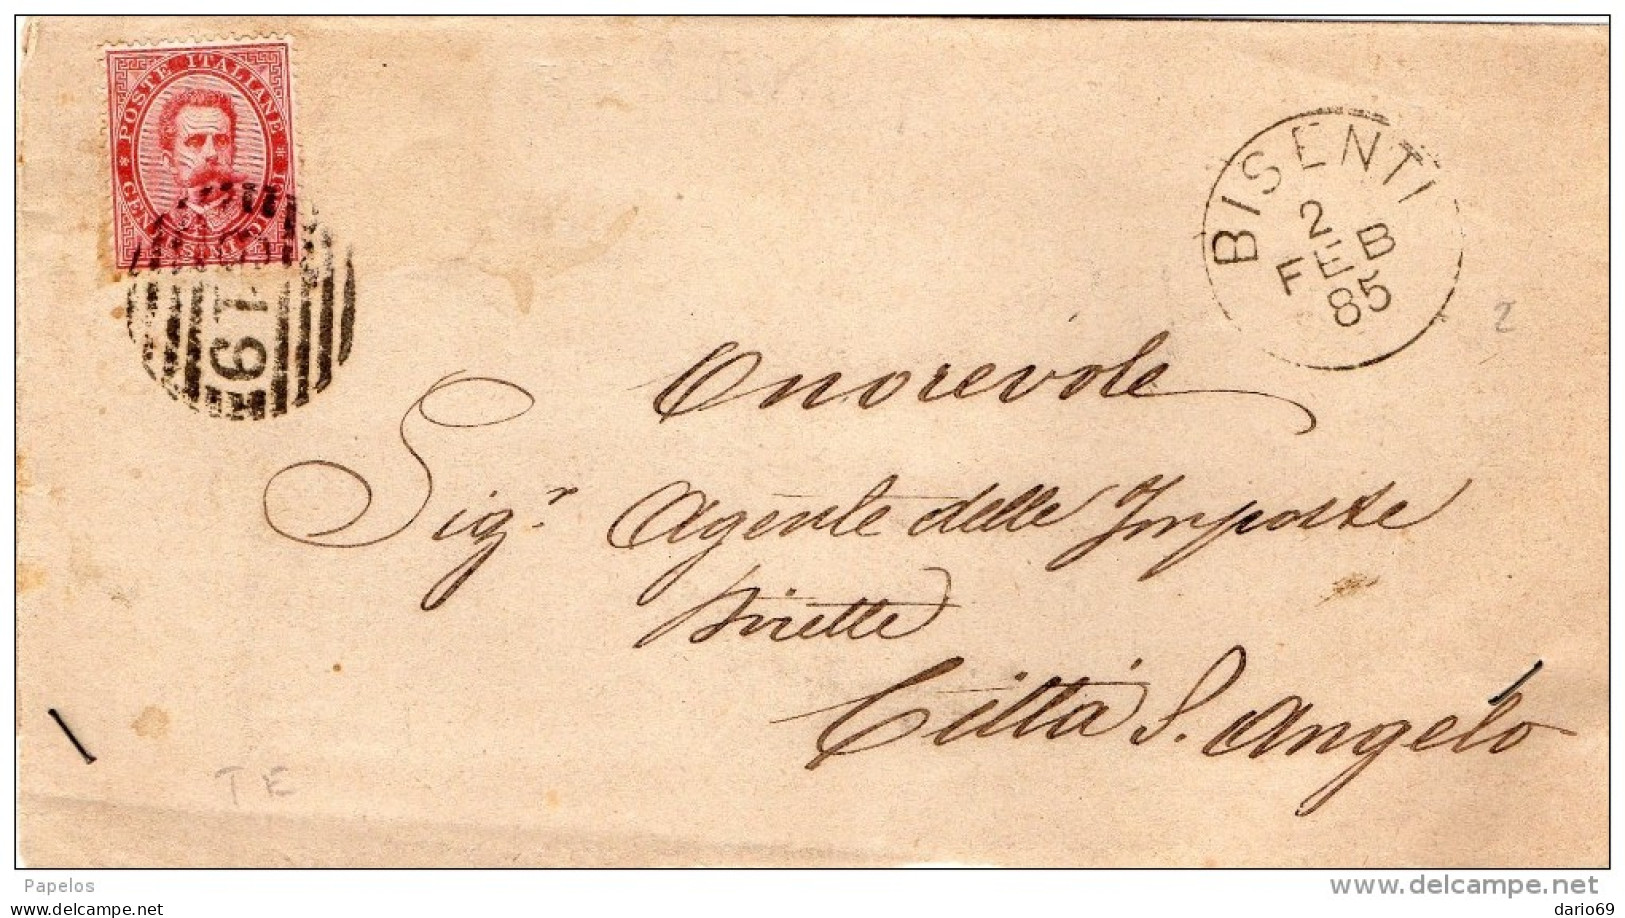 POSTE ITALIANE
BISENTI
2 B
FEB
85
2
Onorevole
Sig.r Agente delle Imposte
Dirette
Città S. Angelo
TE
Papelos
www.delcampe.net
dario69